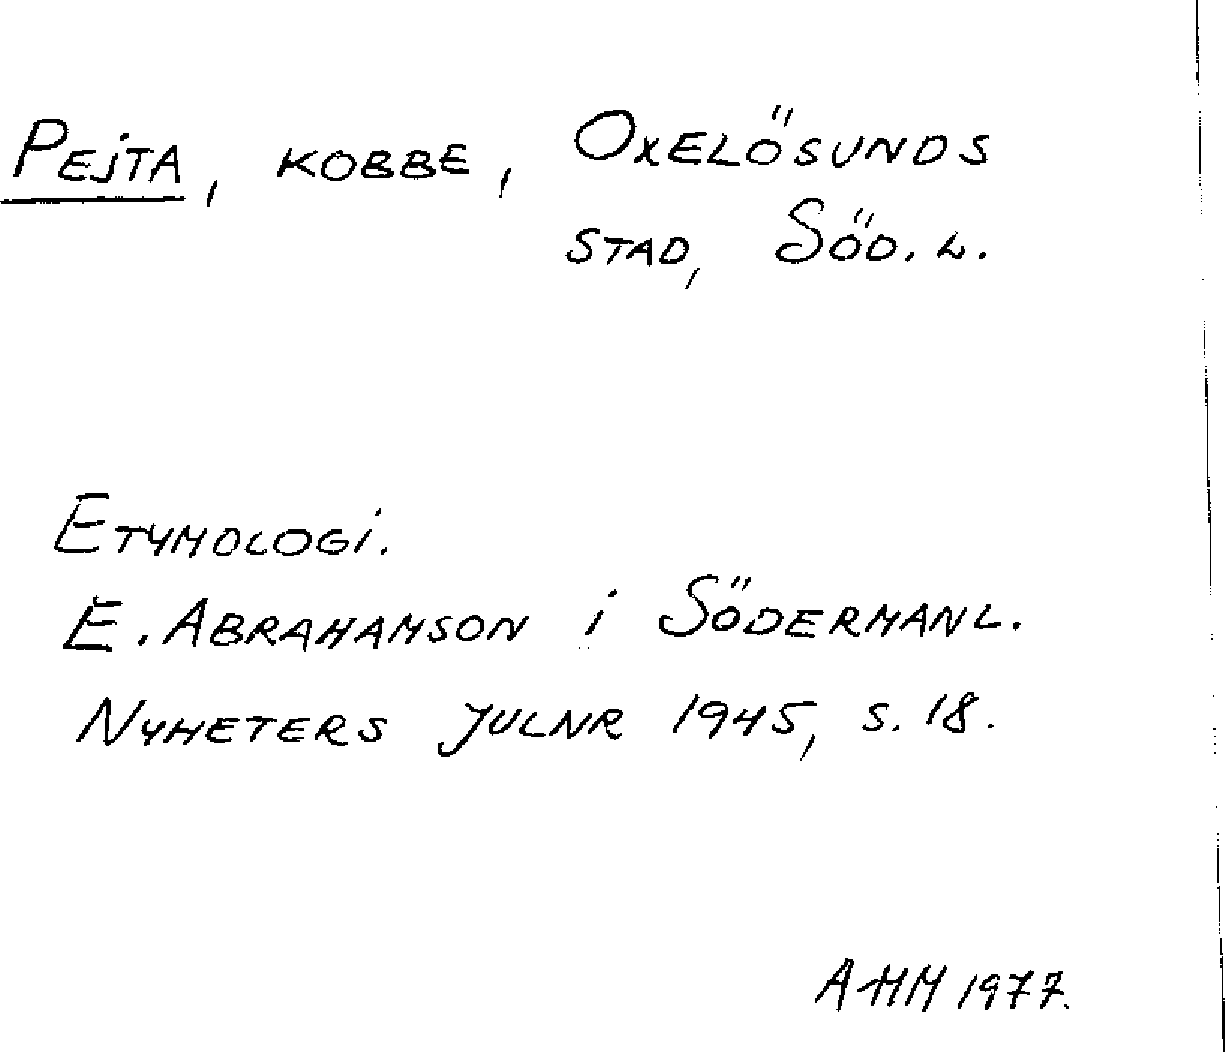 Pejta, kobbe, Oxelösunds
stad, Söd. L.
Etymologi.
E. Abrahamson i Södermanl.
Nyheters julnr 1945, s. 18.
AHM 1977.